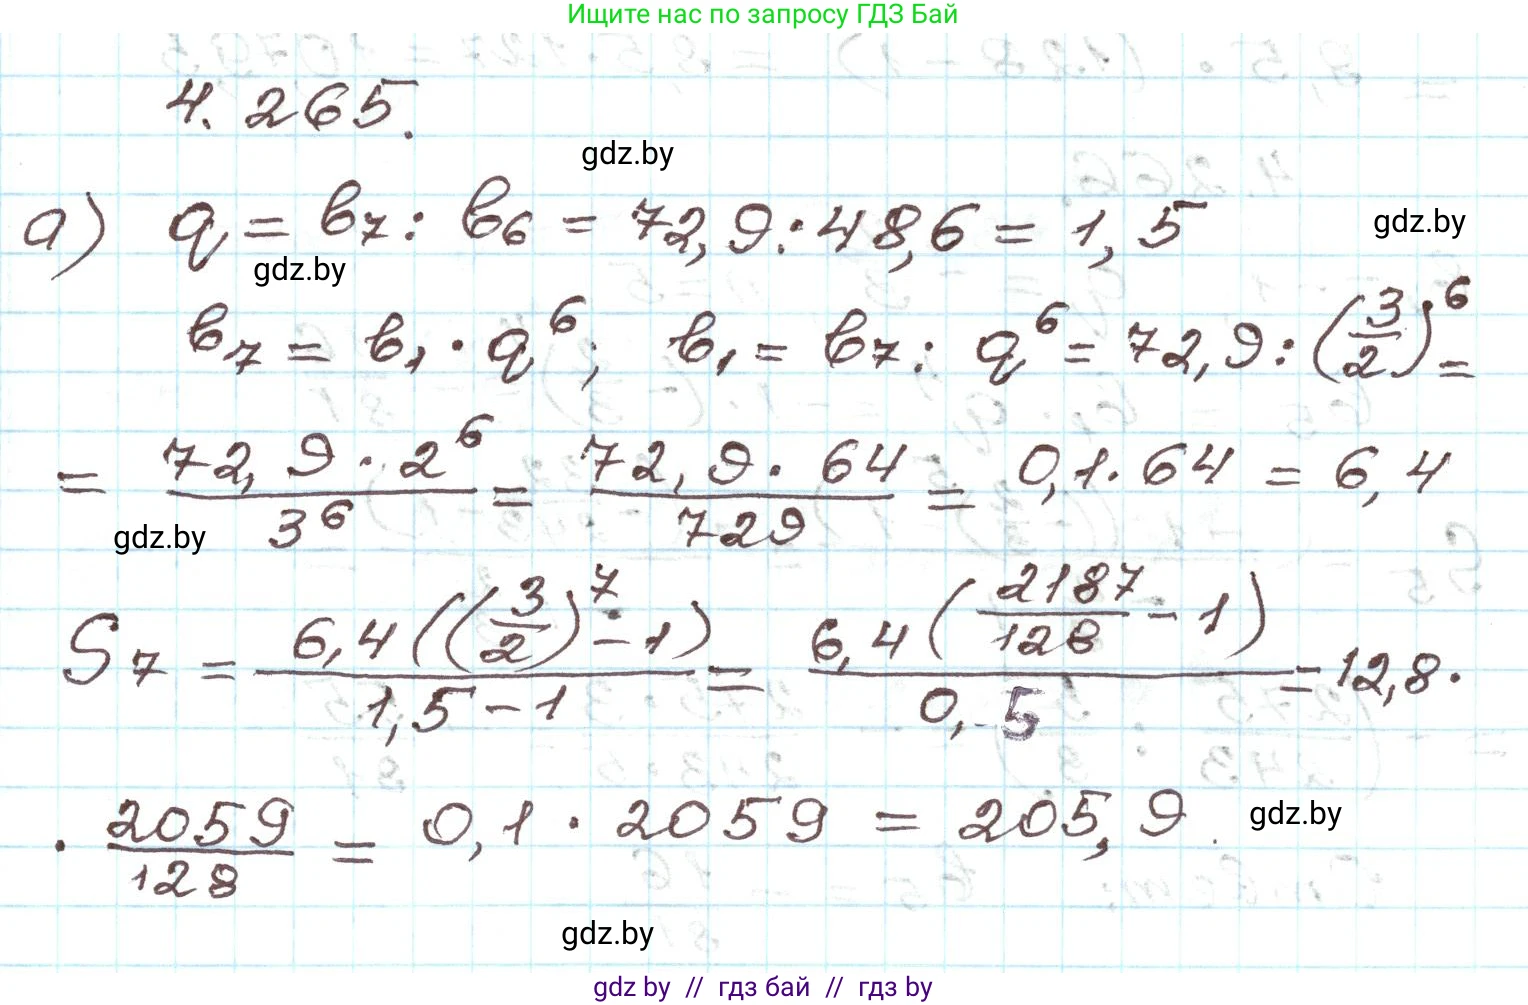 Ищите нас по запросу ГДЗ Бай
4.265.
gdz.by
а) q = b₇ : b₆ = 72,9 : 48,6 = 1,5
gdz.by
gdz.by
b₇ = b₁ · q⁶; b₁ = b₇ : q⁶ = 72,9 : (3/2)⁶ =
= 72,9 · 2⁶ / 3⁶ = 72,9 · 64 / 729 = 0,1 · 64 = 6,4
gdz.by
S₇ = 6,4((3/2)⁷ - 1) / 1,5 - 1 = 6,4(2187/128 - 1) / 0,5 = 12,8 ·
· 2059/128 = 0,1 · 2059 = 205,9
gdz.by
gdz.by
gdz by // гдз бай // gdz by